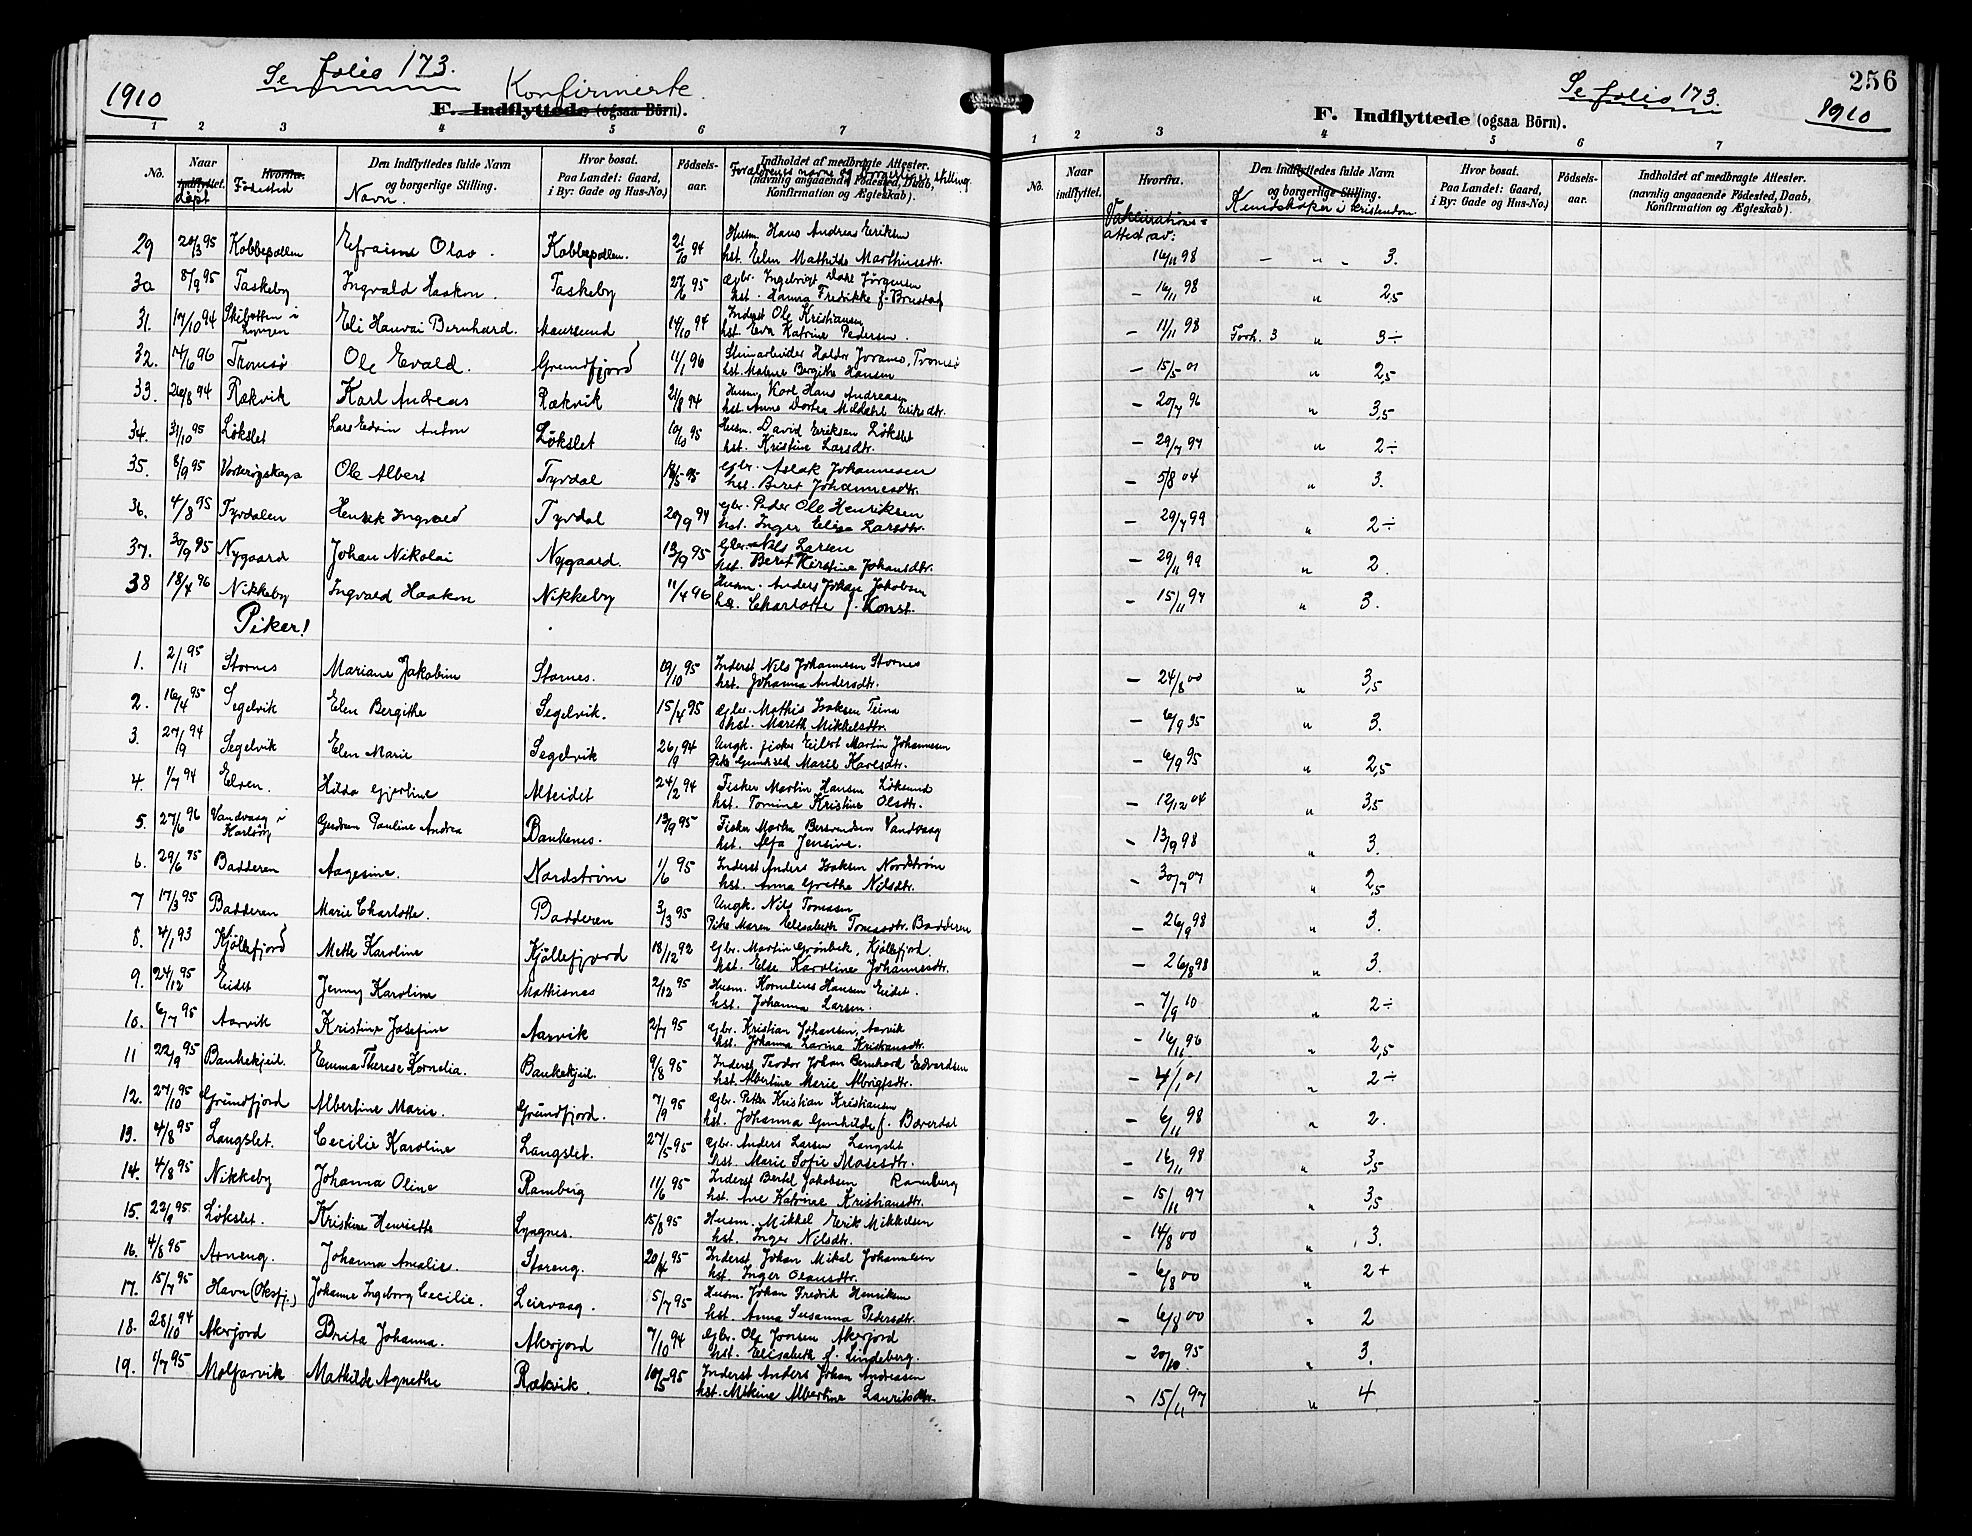 1910
Se folio 173.
Konfirmerte
F. Indflyttede (ogsaa Börn).
1 2 3 4 5 6 7
No.
Naar indflyttet.
døpt
Hvorfra.
Fødested
Den Indflyttedes fulde Navn og borgerlige Stilling.
Navn.
Hvor bosat. Paa Landet: Gaard, i By: Gade og Hus-No.)
Födsels-aar.
Indholdet af medbragte Attester. (navnlig angaaende Födested, Daab, Konfirmation og Ægteskab).
Forældrenes navne og borgerlige stilling
29 20/3 95 Kobbepollen Efraim Olav. Kobbepollen. 94 Husm. Hans Andreas Eriksen
hst. Elen Mathilde Marthinsdtr.
30 8/9 95 Taskeby Ingvald Haakon. Taskeby 27/6 95 Gbr. Ingebrigt Dahl Jörgensen
hst. Hanna Fredrikke f. Brustad
31. 17/10 94 Skibotten i Lyngen Eli Hanvai Bernhard. Maursund 14/10 94 Inderst Ole Kristiansen
hst. Eva Katrine Pedersen.
32. 14/6 96 Tromsø Ole Evald. Grundfjord 11/1 96 Stenarbeider Halder Jorams, Tromsø
hst. Malene Bergithe Hansen
33. 26/8 94 Rakvik Karl Andreas Rakvik 21/8 94 Husm. Karl Hans Andreasen
hst. Anne Dortea Mildahl Eriksdtr.
34. 31/10 95 Løkslet Lars Edvin Anton Løkslet 10/10 95 Husm. David Eriksen Løkslet
hst. Kristine Larsdtr.
35. 8/9 95 Vorterøyskaga Ole Albert Tyvdal 95 Gbr. Aslak Johannesen
hst. Beret Johannesdtr.
36. 4/8 95 Tyvdalen Henrik Ingvald Tyvdal 20/9 94 Gbr. Peder Ole Henriksen
hst. Inger Elisa Larsdtr.
37. 30/9 95 Nygaard Johan Nikolai Nygaard. 13/9 95 Gbr. Nils Larsen
hst. Beret Kirstine Johansdtr.
38 18/4 96 Nikkeby Ingvald Haakon Nikkeby 11/4 96 Husm. Anders Johan Jakobsen
hst. Charlotte f. Konst.
Piker!
1. 2/11 95 Stornes Mariane Jakobine Stornes. 09/10 95 Inderst Nils Johannesen Stornes
hst. Johanna Andersdtr.
2. 16/4 95 Segelvik Elen Bergithe Segelvik. 15/4 95 Gbr. Mathis Isaksen Teina
hst. Mareth Mikkelsdtr.
3. 27/9 94 Segelvik Elen Marie Segelvik 26/9 94 Ungk. fisker Eilert Martin Johannesen
Pike Gunhild Marie Karlsdtr.
4. 1/7 94 Elven. Hilda Gjertine Alteidet 24/2 94 Fisker Martin Hansen Løksund
hst. Tomine Kristine Olsdtr.
5. 27/6 96 Vandvaag i Karlsøy Gudrun Pauline Andrea Bankenes. 13/9 95 Fisker Morten Berntsen Vandvaag
hst. Alfa Jensine.
6. 29/6 95 Badderen Aagesine. Nordstrøm 1/6 95 Inderst Anders Isaksen Nordstrøm
hst. Anna Grethe Nilsdtr.
7 17/3 95 Badderen Marie Charlotte. Badderen 3/3 95 Ungk. Nils Tomasen
Pike Maren Elisabeth Tomasdtr. Badderen
8. 4/1 93 Kjøllefjord Mette Karoline Kjøllefjord 18/12 92 Gbr. Martin Grønbek, Kjøllefjord.
hst. Else Karoline Johannesdtr.
9. 24/12 95 Eidet Jenny Karoline Mathisnes 2/12 95 Husm. Kornelius Hansen Eidet.
hst. Johanna Larsen.
10. 6/7 95 Aarvik Kristine Josefine Aarvik 2/7 95 Gbr. Kristian Johansen, Aarvik
hst. Johanna Larina Kristiansdtr.
11 22/9 95 Bankekjeil. Emma Therese Kornelia. Bankekjeil. 9/8 95 Inderst Teodor Johan Bernhard Edvardsen
hst. Albertine Marie Albrigtsdtr.
12. 27/10 95 Grundfjord Albertine Marie. Grundfjord. 7/9 95 Gbr. Peter Kristian Kristiansen
hst. Johanna Gunhilde f. Boverdal
13. 4/8 95 Langslet. Cecilie Karoline Langslet. 27/5 95 Gbr. Anders Larsen Langslet
hst. Marie Sofie Mosesdtr.
14. 4/8 95 Nikkeby Johanna Oline Ramberg 11/6 95 Inderst Bertel Jakobsen Ramberg
hst. Ane Katrine Kristiansdtr.
15. 22/9 95. Løkslet. Kristine Henriette Lyngnes. 15/8 95 Husm. Mikkel Erik Mikkelsen
hst. Inger Nilsdtr.
16. 4/8 95 Arneng. Johanna Amalie. Storeng. 20/4 95 Inderst Johan Mikal Johannesen
hst. Inger Olausdtr.
17. 15/7 95 Havn (Oksfj.) Johanne Ingeborg Cecilie. Leirvaag. 5/7 95 Husm. Johan Fredrik Henriksen
hst. Anna Susanna Pedersdtr.
18. 28/10 94 Akerjord Brita Johanna. Akerjord 7/10 94 Gbr. Ole Joonsen Akerjord
hst. Elisabeth f. Lindeberg.
19. 4/7 95 Molfarvik Mathilde Agnethe Rakvik. 10/5 95 Inderst Anders Johan Andreasen
hst. Mekine Albertine Lauritsdtr.
Se folio 173.
256
1910
F. Indflyttede (ogsaa Börn).
1 2 3 4 5 6 7
No.
Naar indflyttet.
Hvorfra.
Vakcinations=attest av:
Den Indflyttedes fulde Navn og borgerlige Stilling.
Kundskaper i kristendom
Hvor bosat. Paa Landet: Gaard, i By: Gade og Hus-No.)
Födsels-aar.
Indholdet af medbragte Attester. (navnlig angaaende Födested, Daab, Konfirmation og Ægteskab).
16/11 98 – " – 3.
– 16/11 98 " 2,5
– 11/11 98 Forh. 3 " 3÷
– 15/5 01 " 2,5
– 20/7 96 " 3,5
– 29/7 97 " 2÷
– 5/8 04 " 3.
– 29/7 99 " 2÷
– 29/11 99 " 2.
– 15/11 97 " 3.
– 24/8 00 " 3,5
– 6/9 95 " 3.
– 6/9 95 " 2,5
– 12/12 04 " 3,5
– 13/9 98 " 3.
– 30/7 07 " 2,5
– 26/9 98 " 3.
– 26/8 98 " 3.
– 7/9 10 " 2÷
– 16/11 96 " 2,5
– 4/1 01 " 2÷
– 6/11 98 " 2.
– 16/11 98 " 3,5
– 15/11 97 " 3,5
– 14/8 00 " 3.
– 6/8 00 " 2+
– 6/8 00 " 2
– 20/10 95 " 3.
– 15/11 97 " 4